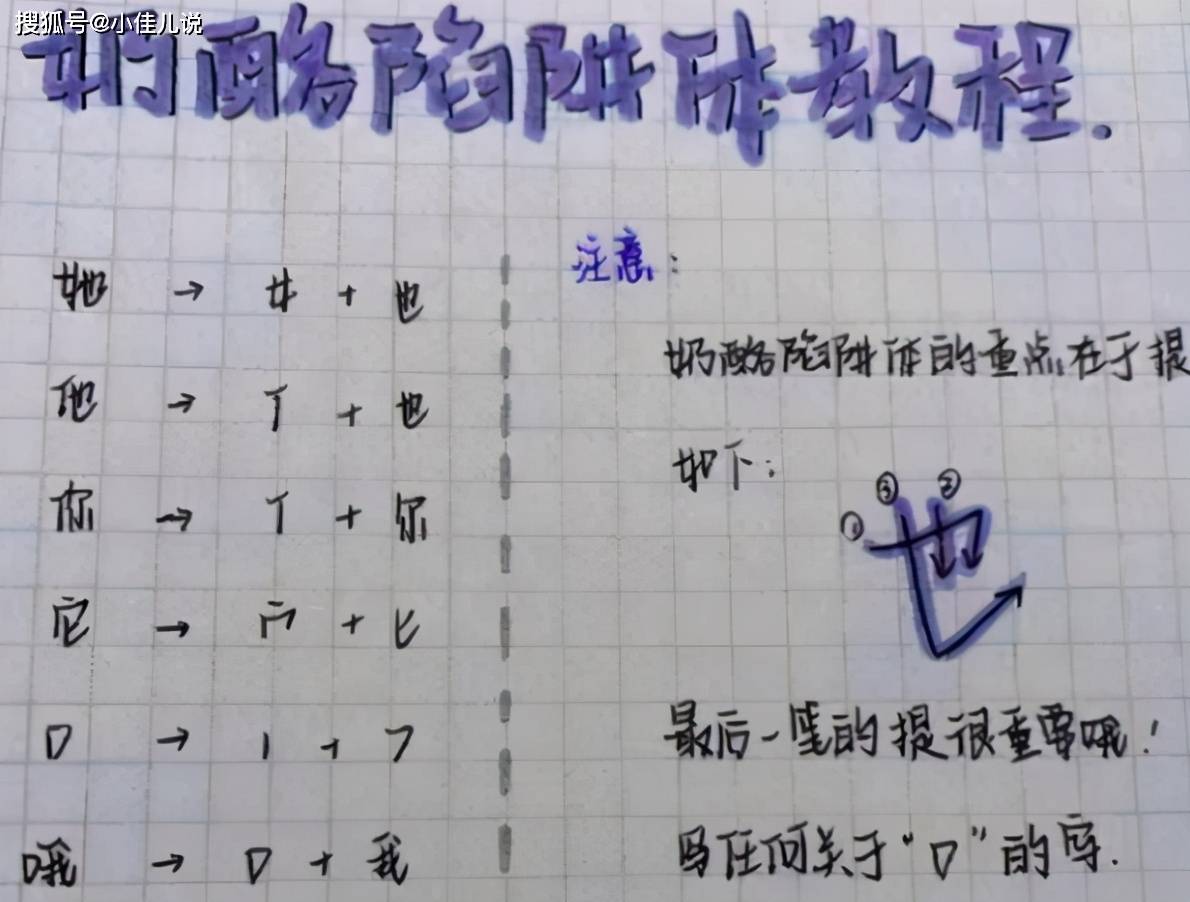 搜狐号@小佳儿说
奶酪陷阱体教程.
她 → 女 + 也
他 → 亻 + 也
你 → 亻 + 尔
它 → 宀 + 匕
口 → 丨 + ㇕
哦 → 口 + 我
注意:
奶酪陷阱体的重点在于提
如下:
① ③ ②
也
最后一笔的提很重要哦!
写任何关于“口”的字.